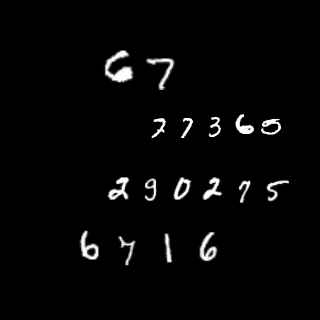 67
77365
290275
6716